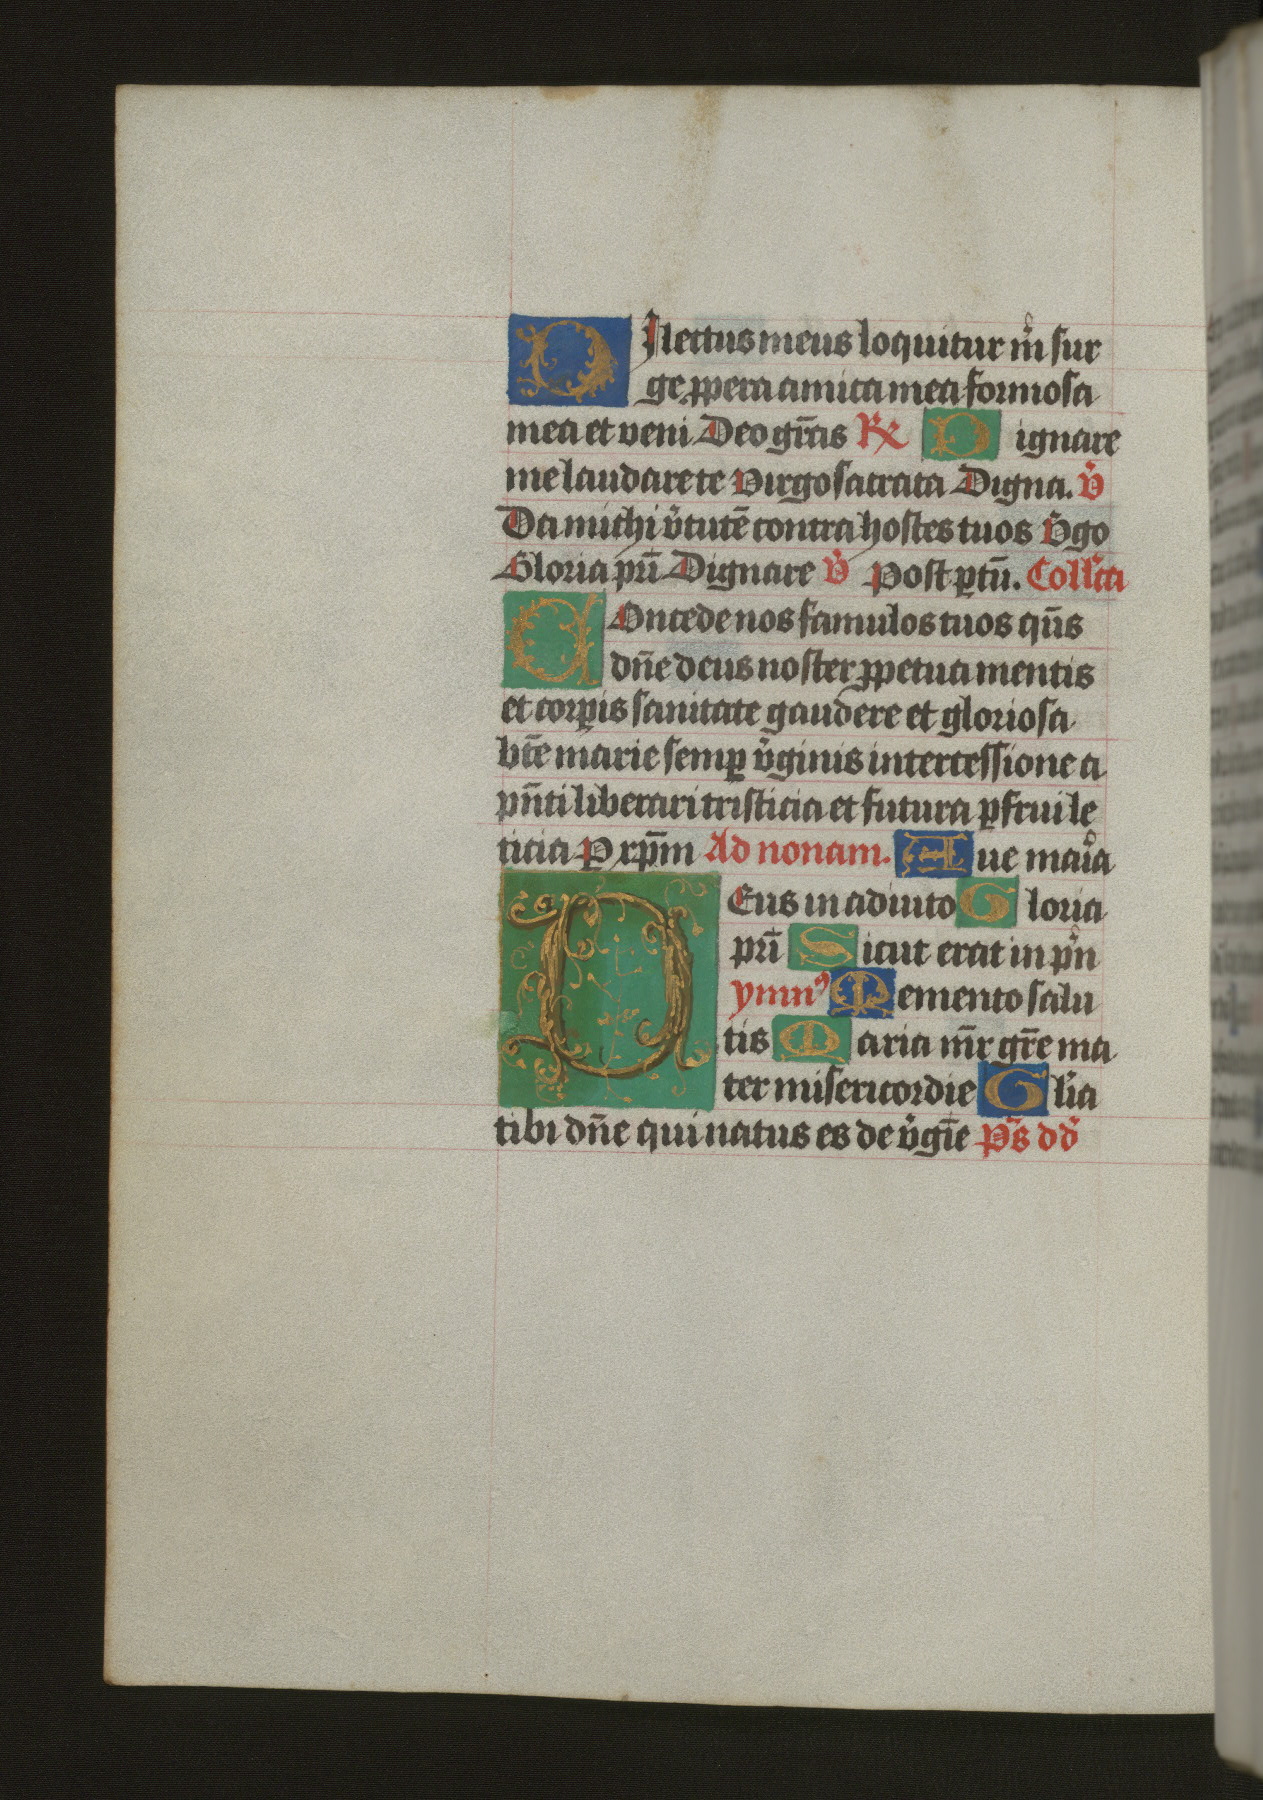 DIlectus meus loquitur m̊ sur
ge ꝓpera amica mea formosa
mea et veni Deo gr̄as R℣ Dignare
me laudare te Virgo sacrata Digna. v̾
Da michi v̾tutē contra hostes tuos V̾go
Gloria pr̄i Dignare v̾ Post ꝑtū. Coll̄ca
COncede nos famulos tuos qūs
dn̄e deus noster ꝓpetua mentis
et corꝑis sanitate gaudere et gloriosa
bt̄e marie semꝑ v̾ginis intercessione a
pn̄ti liberari tristicia et futura ꝑfrui le
ticia P xp̄m Ad nonam. Aue maria
DEus in adiuto Gloria
pr̄i Sicut erat in pͥn
ymnꝰ Memento salu
tis Maria mr̄ gr̄e ma
ter misericordie Gl̄ia
tibi dn̄e qui natus es de v̾gīe Ps̄ dd̄